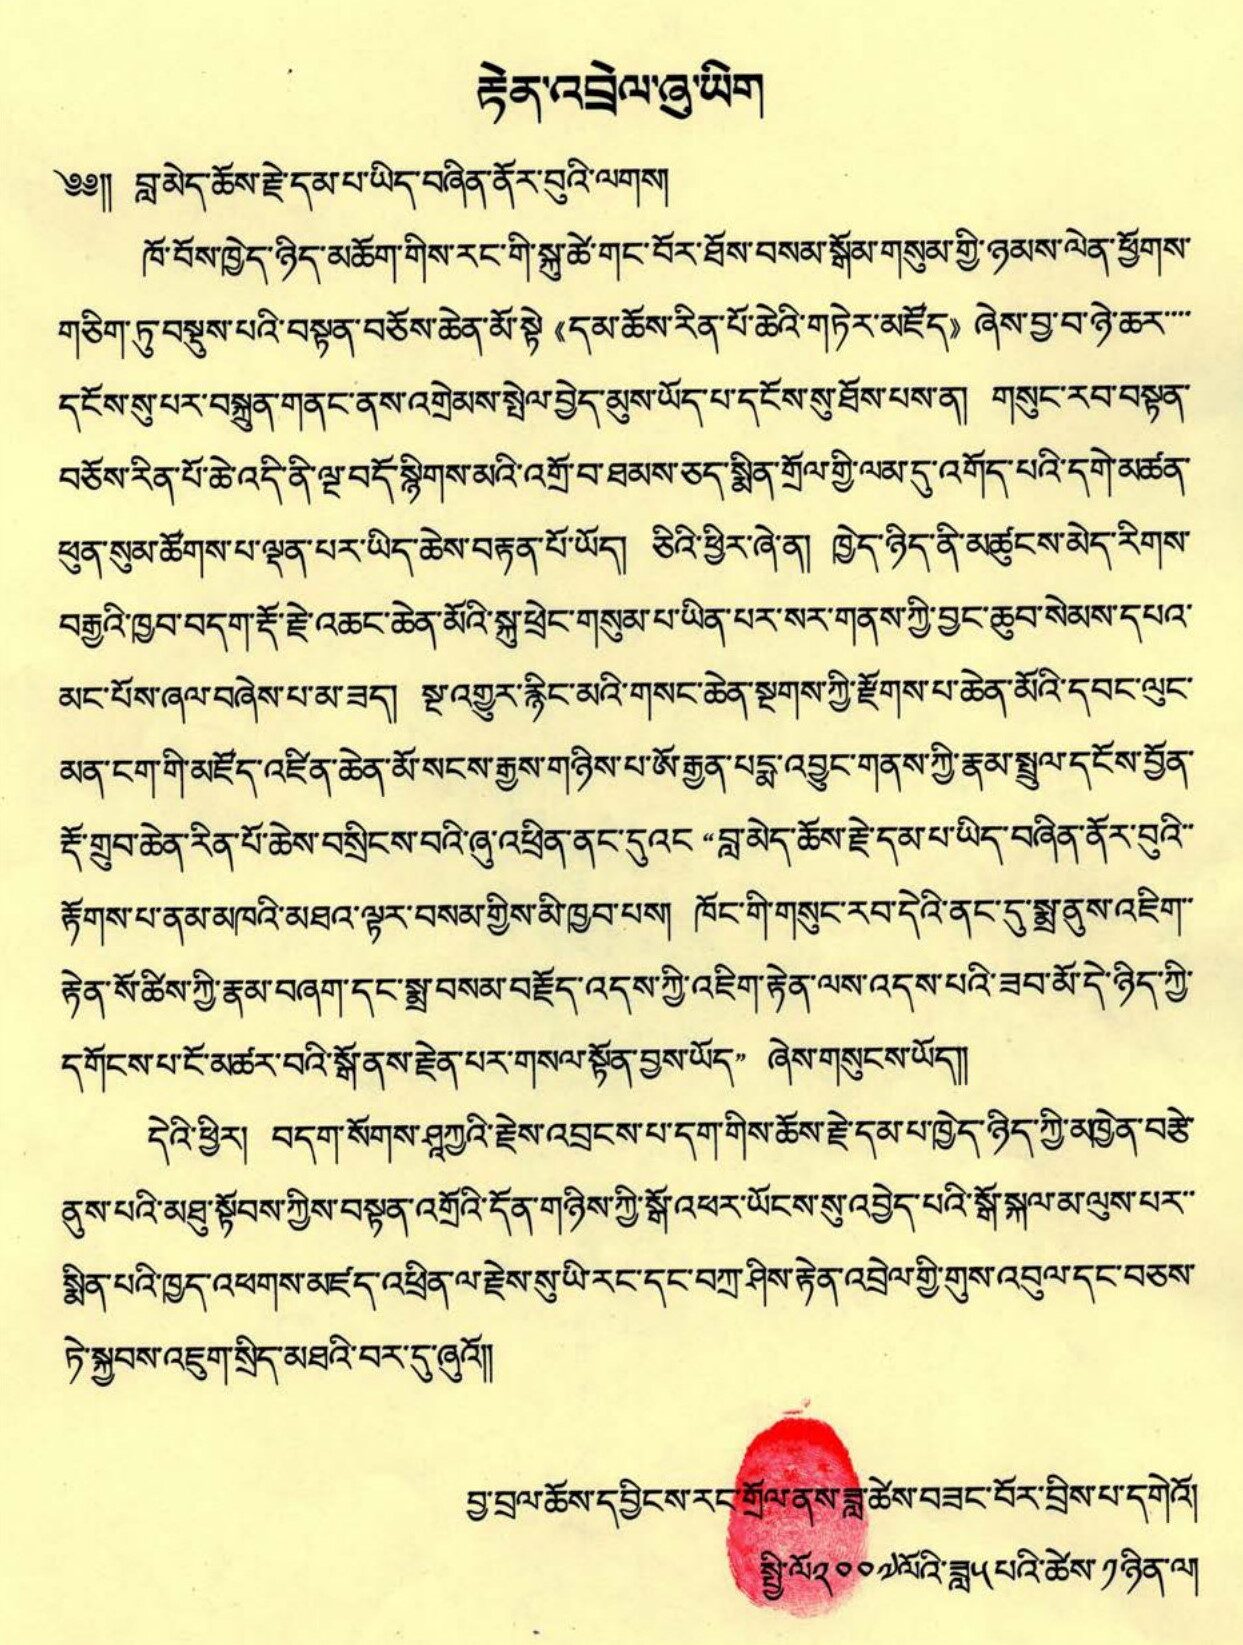 རྟེན་འབྲེལ་ཞུ་ཡིག
༄༅།། བླ་མེད་ཆོས་རྗེ་དམ་པ་ཡིད་བཞིན་ནོར་བུའི་ལགས།
ཁོ་བོས་ཁྱེད་ཉིད་མཆོག་གིས་རང་གི་སྐུ་ཚེ་གང་བོར་ཐོས་བསམ་སྒོམ་གསུམ་གྱི་ཉམས་ལེན་ཕྱོགས་
གཅིག་ཏུ་བསྡུས་པའི་བསྟན་བཅོས་ཆེན་མོ་སྟེ《དམ་ཆོས་རིན་པོ་ཆེའི་གཏེར་མཛོད》ཞེས་བྱ་བ་ཉེ་ཆར་
དངོས་སུ་པར་བསྐྲུན་གནང་ནས་འགྲེམས་སྤེལ་བྱེད་མུས་ཡོད་པ་དངོས་སུ་ཐོས་པས་ན། གསུང་རབ་བསྟན་
བཅོས་རིན་པོ་ཆེ་འདི་ནི་ལྔ་བདོ་སྙིགས་མའི་འགྲོ་བ་ཐམས་ཅད་སྨིན་གྲོལ་གྱི་ལམ་དུ་འགོད་པའི་དགེ་མཚན་
ཕུན་སུམ་ཚོགས་པ་ལྡན་པར་ཡིད་ཆེས་བརྟན་པོ་ཡོད། ཅིའི་ཕྱིར་ཞེ་ན། ཁྱེད་ཉིད་ནི་མཚུངས་མེད་རིགས་
བརྒྱའི་ཁྱབ་བདག་རྡོ་རྗེ་འཆང་ཆེན་མོའི་སྐུ་ཕྲེང་གསུམ་པ་ཡིན་པར་སར་གནས་ཀྱི་བྱང་ཆུབ་སེམས་དཔའ་
མང་པོས་ཞལ་བཞེས་པ་མ་ཟད། སྔ་འགྱུར་རྙིང་མའི་གསང་ཆེན་སྔགས་ཀྱི་རྫོགས་པ་ཆེན་མོའི་དབང་ལུང་
མན་ངག་གི་མཛོད་འཛིན་ཆེན་མོ་སངས་རྒྱས་གཉིས་པ་ཨོ་རྒྱན་པདྨ་འབྱུང་གནས་ཀྱི་རྣམ་སྤྲུལ་དངོས་བྱོན་
རྡོ་གྲུབ་ཆེན་རིན་པོ་ཆེས་བསྲིངས་བའི་ཞུ་འཕྲིན་ནང་དུ་འང་“བླ་མེད་ཆོས་རྗེ་དམ་པ་ཡིད་བཞིན་ནོར་བུའི་
རྟོགས་པ་ནམ་མཁའི་མཐའ་ལྟར་བསམ་གྱིས་མི་ཁྱབ་པས། ཁོང་གི་གསུང་རབ་དེའི་ནང་དུ་སྨྲ་ནུས་འཇིག་
རྟེན་སོ་ཚིས་ཀྱི་རྣམ་བཞག་དང་སྨྲ་བསམ་བརྗོད་འདས་ཀྱི་འཇིག་རྟེན་ལས་འདས་པའི་ཟབ་མོ་དེ་ཉིད་ཀྱི་
དགོངས་པ་ངོ་མཚར་བའི་སྒོ་ནས་རྗེན་པར་གསལ་སྟོན་བྱས་ཡོད” ཞེས་གསུངས་ཡོད།།
དེའི་ཕྱིར། བདག་སོགས་ཤཱཀྱའི་རྗེས་འབྲངས་པ་དག་གིས་ཆོས་རྗེ་དམ་པ་ཁྱེད་ཉིད་ཀྱི་མཁྱེན་བརྩེ་
ནུས་པའི་མཐུ་སྟོབས་ཀྱིས་བསྟན་འགྲོའི་དོན་གཉིས་ཀྱི་སྒོ་འཕར་ཡོངས་སུ་འབྱེད་པའི་སྒོ་སྐལ་མ་ལུས་པར་
སྨིན་པའི་ཁྱད་འཕགས་མཛད་འཕྲིན་ལ་རྗེས་སུ་ཡི་རང་དང་བཀྲ་ཤིས་རྟེན་འབྲེལ་གྱི་གུས་འབུལ་དང་བཅས་
ཏེ་སྐྱབས་འཇུག་སྲིད་མཐའི་བར་དུ་ཞུའོ།།
བྱ་བྲལ་ཆོས་དབྱིངས་རང་གྲོལ་ནས་ཟླ་ཚེས་བཟང་བོར་བྲིས་པ་དགེའོ།
སྤྱི་ལོ༢༠༠༧ལོའི་ཟླ༥པའི་ཚེས་༡ཉིན་ལ།